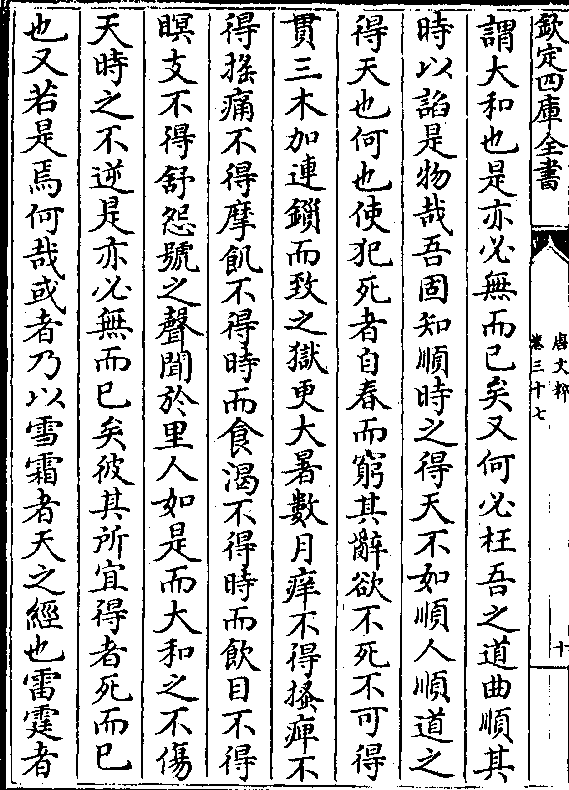 欽定四庫全書
唐文粹
卷三十七
十
謂大和也是亦必無而已矣又何必枉吾之道曲順其
時以諂是物哉吾固知順時之得天不如順人順道之
得天也何也使犯死者自春而窮其辭欲不死不可得
貫三木加連鎖而致之獄更大暑數月痒不得搔痺不
得搖痛不得摩飢不得時而食渴不得時而飲目不得
瞑支不得舒怨號之聲聞於里人如是而大和之不傷
天時之不逆是亦必無而已矣彼其所宜得者死而已
也又若是焉何哉或者乃以雪霜者天之經也雷霆者